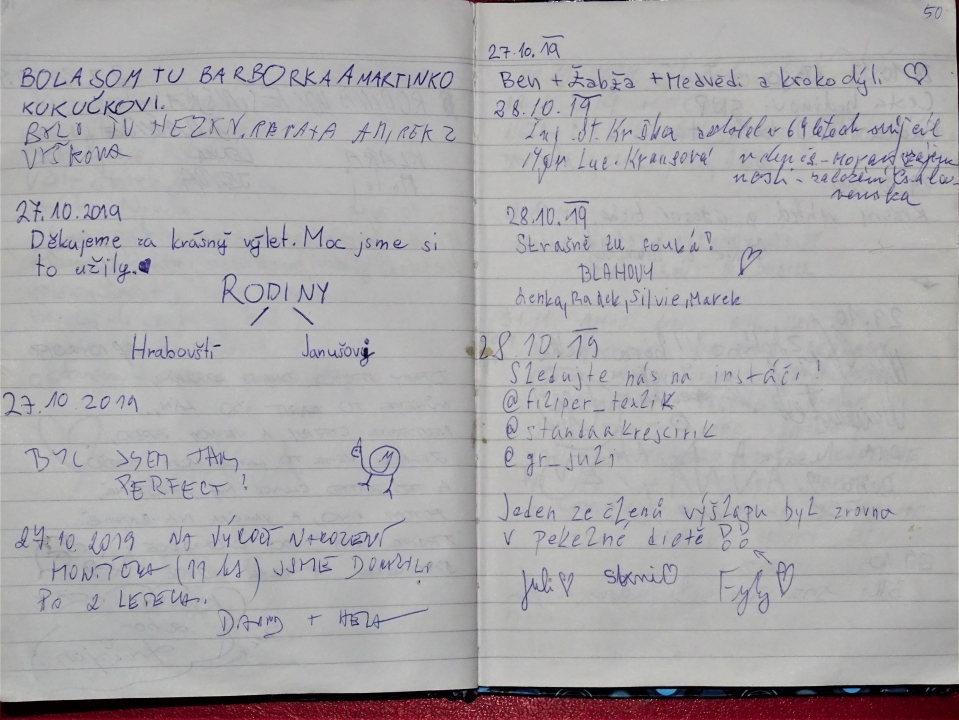 BOLA SOM TU BARBORKA A MARTINKO
KUKUČKOVI.
BYLO TU HEZKY. RENATA A MIREK Z
VYŠKOVA
27.10.2019
Děkujeme za krásný výlet. Moc jsme si
to užily.
RODINY
Hrabovští Janušovi
27.10.2019
BYL JSEM TAM
PERFECT!
27.10.2019 NA VÝROČÍ NAROZENÍ
MONIČKA (11 let) JSME DORAZILI
PO 2 LETECH.
+
50
27.10.19
Ben + Žabža + Medvědi a krokodýli ♡
28.10.19
Ing. St. Kriška zdolal v 64 letech svůj cíl
Mgr Luc. Krausová v den
založení Česko
slovenska
28.10.19
Strašně tu fouká!
BLAHOVY ♡
Lenka, Radek, Silvie, Marek
28.10.19
Sledujte nás na instáči!
@filiper_texlik
@standaakrejcirik
@gr_juli
Jeden ze členů výšlapu byl zrovna
v pekelné dietě !!
juli♡ stani♡ Fyly♡